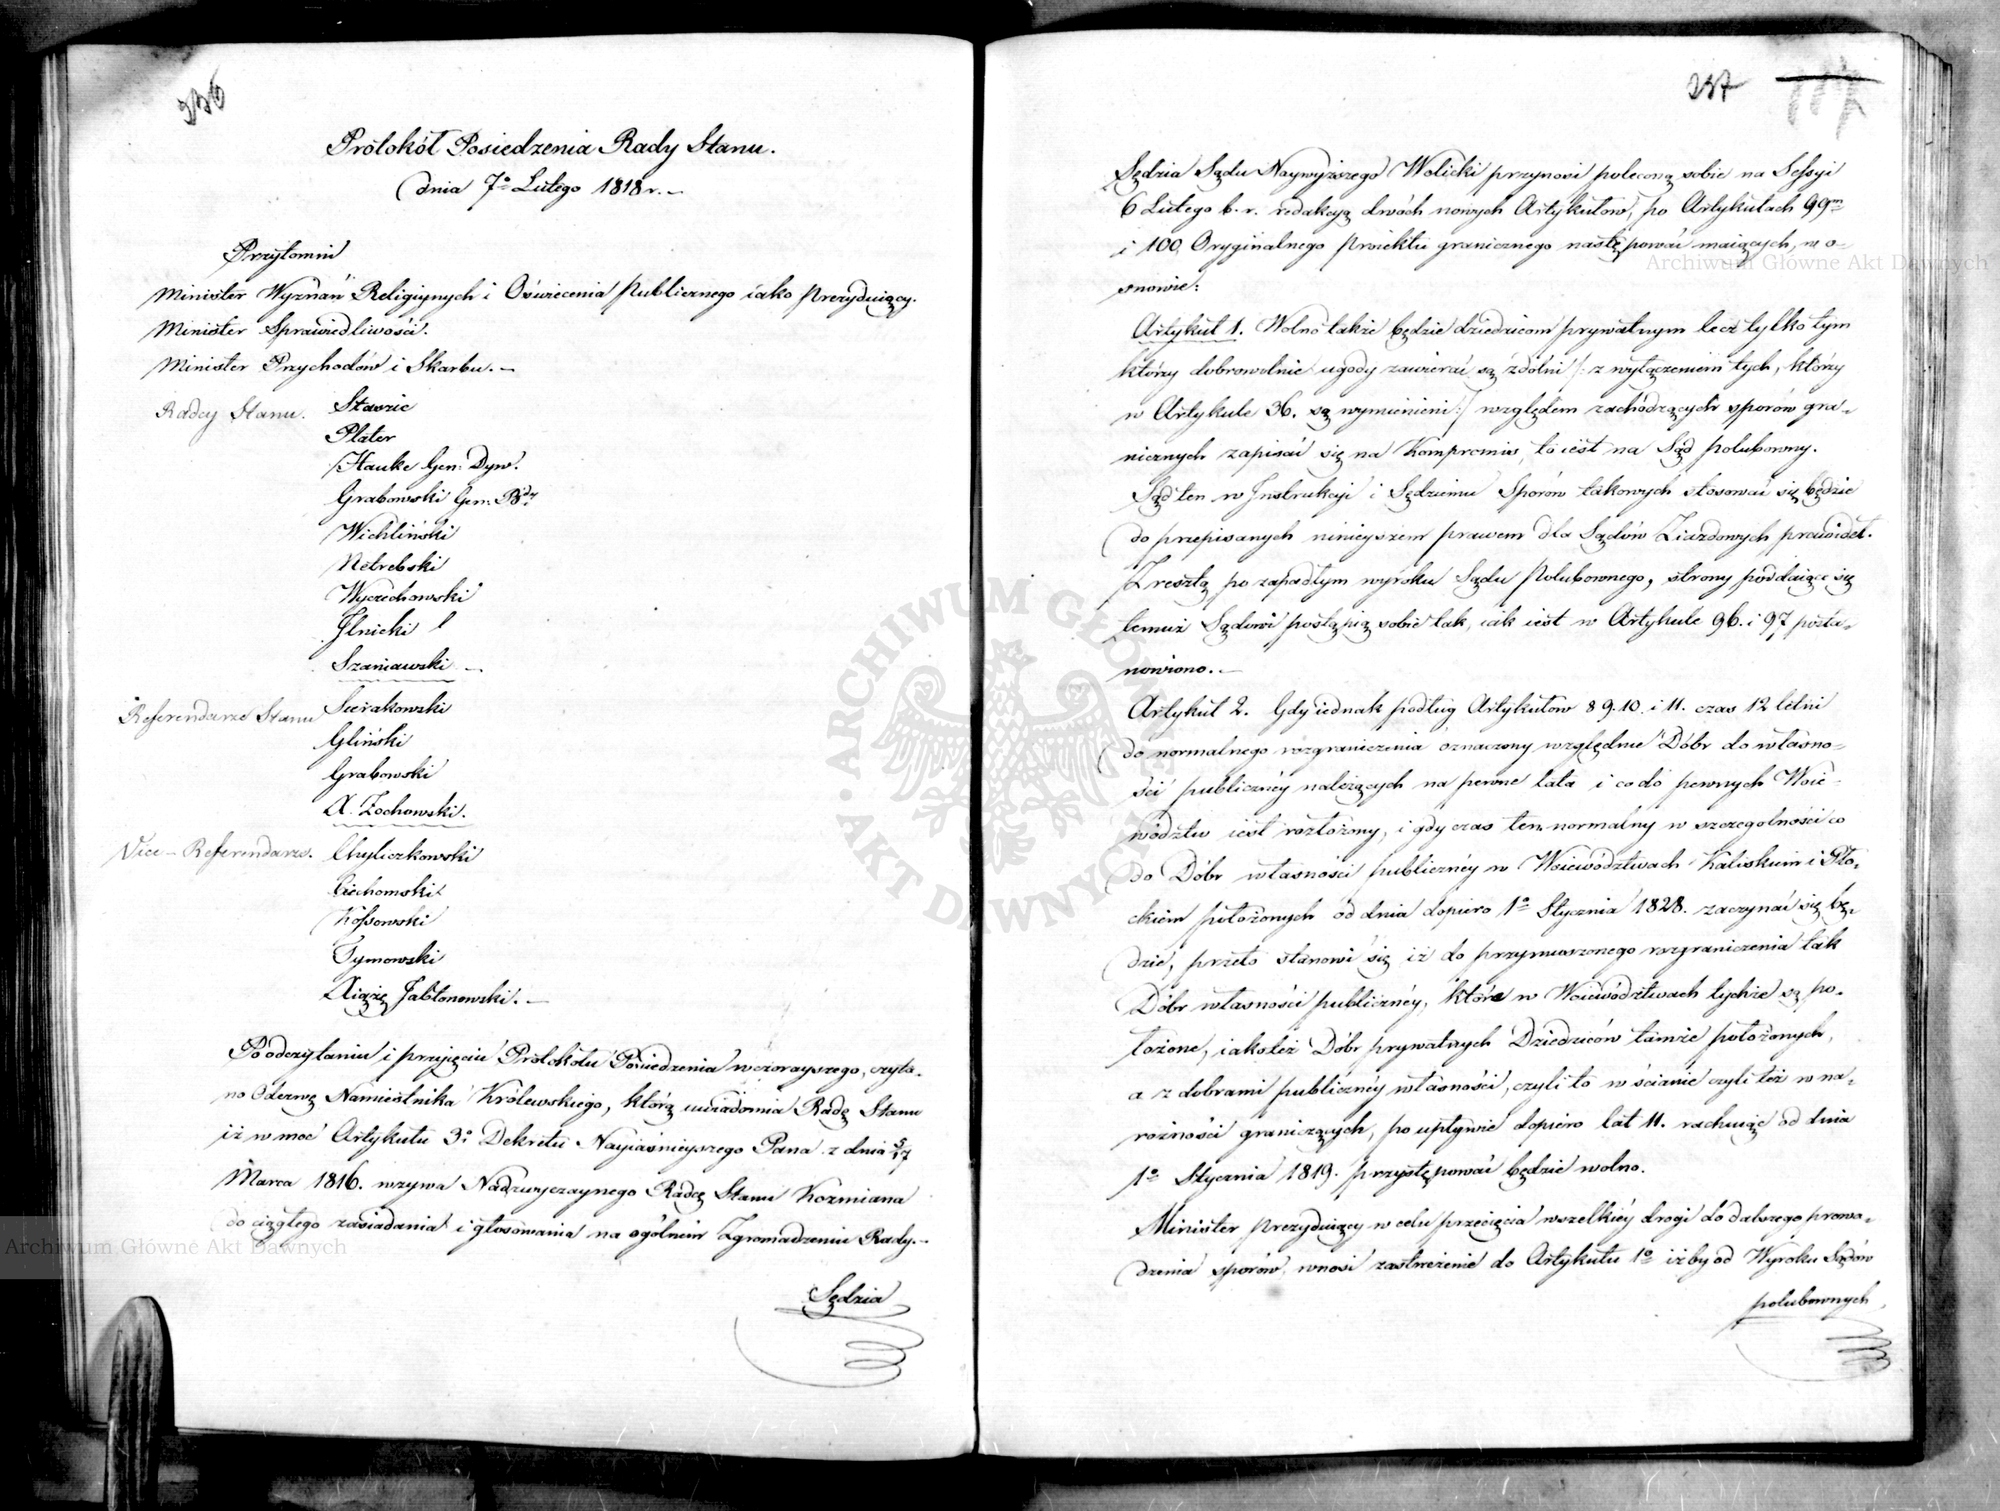 236
Protokół Posiedzenia Rady Stanu.
dnia 7º Lutego 1818 r. –
Przytomni
Minister Wyznań Religiynych i Oświecenia Publicznego iako Prezyduiący.
Minister Sprawiedliwości.
Minister Przychodów i Skarbu. –
Radcy Stanu. Staszic
Plater
Hauke Gen: Dyw.
Grabowski Gen: Bdy
Wichliński
Netrebski
Wyczechowski
Ilnicki
Szaniawski –
Referendarze Stanu Sierakowski
Gliński
Grabowski
A. Żochowski.
Vice – Referendarze. Chyliczkowski
Ciechomski
Kossowski
Tymowski
Xiąże Jabłonowski. –
Po odczytaniu i przyjęciu Protokołu Posiedzenia wczorayszego, czyta-
no Odezwę Namiestnika Królewskiego, którą uwiadomia Radę Stanu
iż w moc Artykułu 3º Dekretu Nayiaśnieyszego Pana z dnia 5/17
Marca 1816. wzywa Nadzwyczaynego Radcę Stanu Koźmiana
do ciągłego zasiadania i głosowania na ogólnem Zgromadzeniu Rady. –
Sędzia
237
Sędzia Sądu Naywyższego Wolicki przynosi poleconą sobie na Sessyi
6 Lutego b. r. redakcyą dwóch nowych Artykułów, po Artykułach 99m
i 100 Oryginalnego Proiektu granicznego następować maiących, w o-
snowie:
Artykuł 1. Wolno także będzie dziedzicom prywatnym lecz tylko tym
którzy dobrowolnie ugody zawierać są zdolni /: z wyłączeniem tych, którzy
w Artykule 36. są wymienieni :/ względem zachodzących sporów gra-
nicznych zapisać się na Kompromis, to iest na Sąd polubowny.
Sąd ten w Instrukcyi i Sędzeniu Sporów takowych stosować się będzie
do przepisanych ninieyszem prawem dla Sądów Ziazdowych prawideł.
Zresztą po zapadłym wyroku Sądu Polubownego, strony poddaiące się
temuż Sądowi postąpią sobie tak, iak iest w Artykule 96. i 97 posta-
nowiono. –
Artykuł 2. Gdy iednak podług Artykułów 8 9. 10. i 11. czas 12 letni
do normalnego rozgraniczenia oznaczony względnie Dóbr do własno-
ści publiczney należących na pewne lata i co do pewnych Woie-
wództw iest rozłożony, i gdy czas ten normalny w szczegolności co
do Dóbr własności publiczney w Woiewództwach Kaliskim i Pło-
ckiem położonych od dnia dopiero 1º Stycznia 1828. zaczynać się bę-
dzie, przeto stanowi się iż do przymuszonego rozgraniczenia tak
Dóbr własności publiczney, które w Woiewództwach tychże są po-
łożone, iakoteż Dóbr prywatnych Dziedziców tamże położonych,
a z dobrami publiczney własności, czyli to w ścianie czyli też w na-
rożności graniczących, po upływie dopiero lat 11. rachuiąc od dnia
1º Stycznia 1819. przystępować będzie wolno.
Minister Prezyduiący w celu przecięcia wszelkiey drogi do dalszego prowa-
dzenia sporów, wnosi zastrzeżenie do Artykułu 1º iżby od Wyroku Sądów
polubownych
ARCHIWUM GŁÓWNE AKT DAWNYCH
Archiwum Główne Akt Dawnych
Archiwum Główne Akt Dawnych